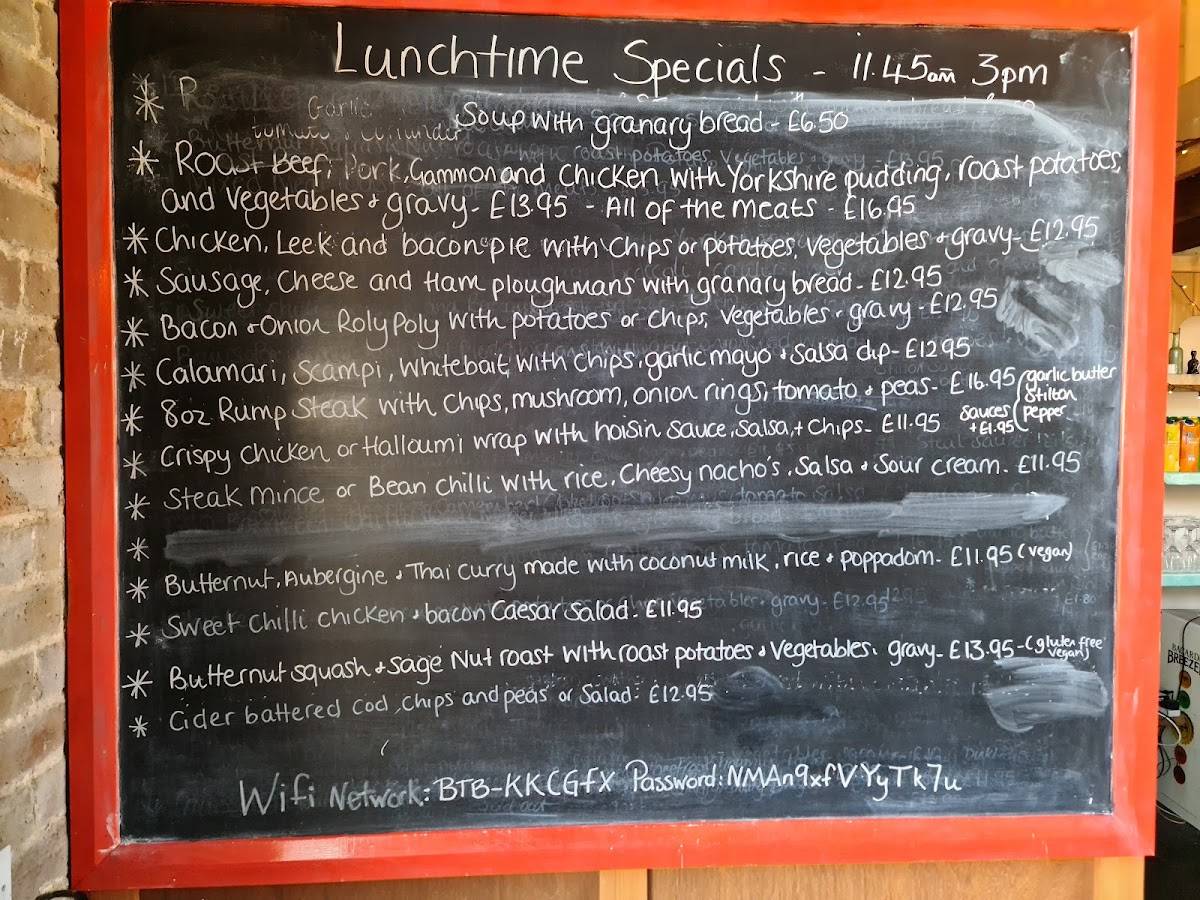 Lunchtime Specials - 11.45am 3pm
* R
* Garlic Soup with granary bread - £6.50
* Roast Beef, Pork, Gammon and Chicken with Yorkshire pudding, roast potatoes,
and Vegetables + gravy - £13.95 - All of the meats - £16.95
* Chicken, Leek and bacon pie with chips or potatoes, Vegetables + gravy - £12.95
* Sausage, Cheese and Ham ploughmans with granary bread - £12.95
* Bacon + Onion Roly Poly with potatoes or chips, Vegetables + gravy - £12.95
* Calamari, Scampi, Whitebait, with chips, garlic mayo + Salsa dip - £12.95
* 8oz Rump Steak with chips, mushroom, onion rings, tomato + peas - £16.95
sauces + £1.95 (garlic butter
Stilton
Pepper
* Crispy chicken or Halloumi wrap with hoisin sauce, salsa, + chips - £11.95
* Steak mince or Bean chilli with rice, Cheesy nacho's, Salsa + Sour cream - £11.95
*
* Butternut, Aubergine + Thai Curry made with coconut milk, rice + poppadom - £11.95 (vegan)
* Sweet chilli chicken + bacon Caesar Salad - £11.95
* Butternut squash + sage Nut roast with roast potatoes + Vegetables, gravy - £13.95 - (gluten free
vegan)
* Cider battered cod, chips and peas or Salad - £12.95
Wifi Network: BTB-KKCGfX Password: NMAn9xfVYyTk7u
BACARDI
BREEZER